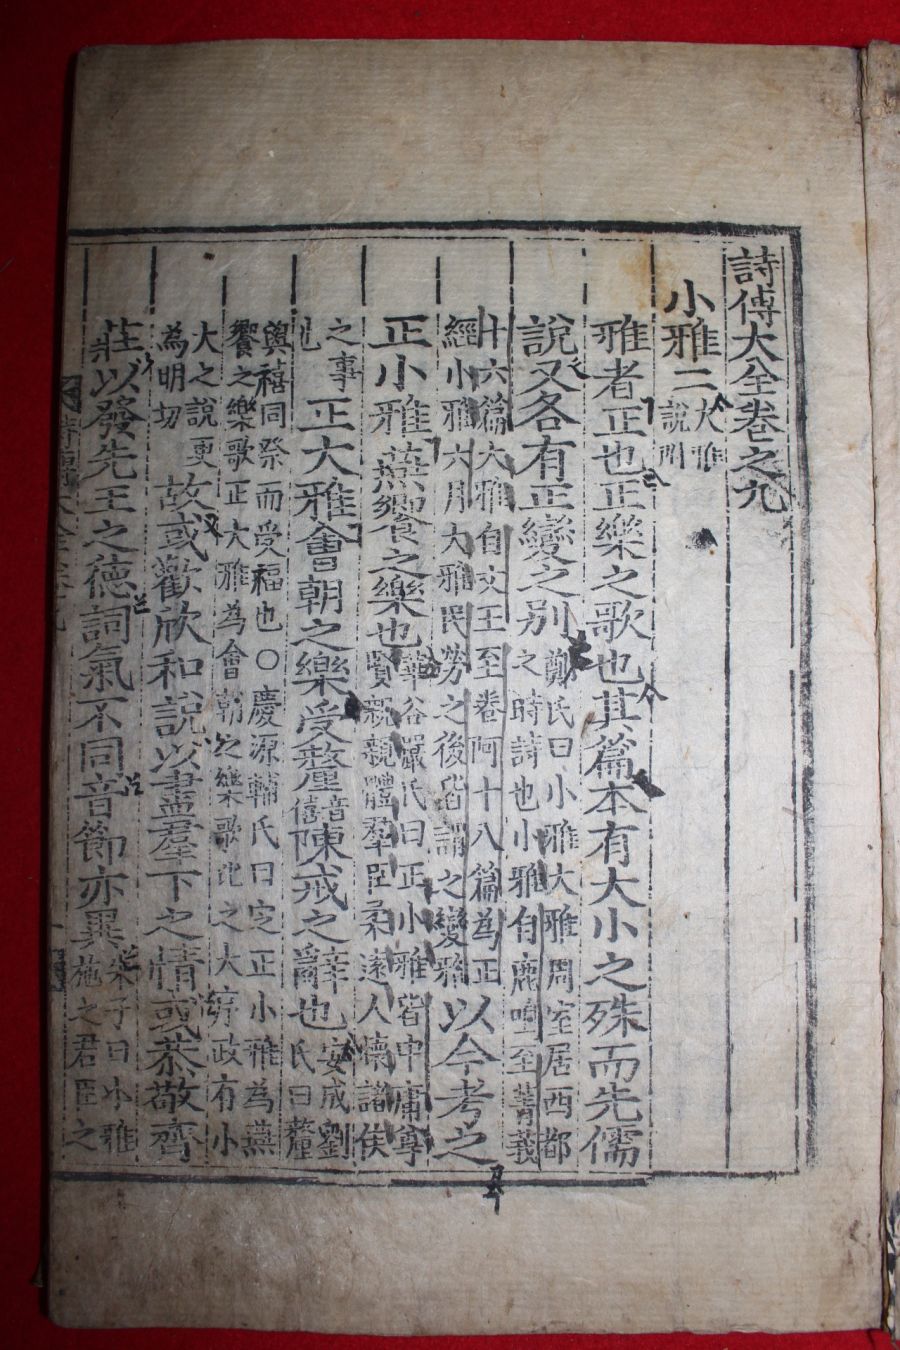 詩傳大全卷之九
小雅二 大雅說附
雅者正也正樂之歌也其篇本有大小之殊而先儒
說又各有正變之別 鄭氏曰小雅大雅周室居西都
之時詩也小雅自鹿鳴至菁莪
十六篇大雅自文王至卷阿十八篇為正
經小雅六月大雅民勞之後皆謂之變雅 以今考之
正小雅燕饗之樂也 華谷嚴氏曰正小雅皆中庸尊
賢親親體羣臣柔遠人懷諸侯
之事
也 正大雅會朝之樂受釐 音僖 陳戒之辭也 安成劉
氏曰釐
與禧同祭而受福也○慶源輔氏曰定正小雅為燕
饗之樂歌正大雅為會朝之樂歌比之大序政有小
大之說更
為明切 故或歡欣和說以盡羣下之情或恭敬齊
莊以發先王之德詞氣不同音節亦異 朱子曰小雅
施之君臣之